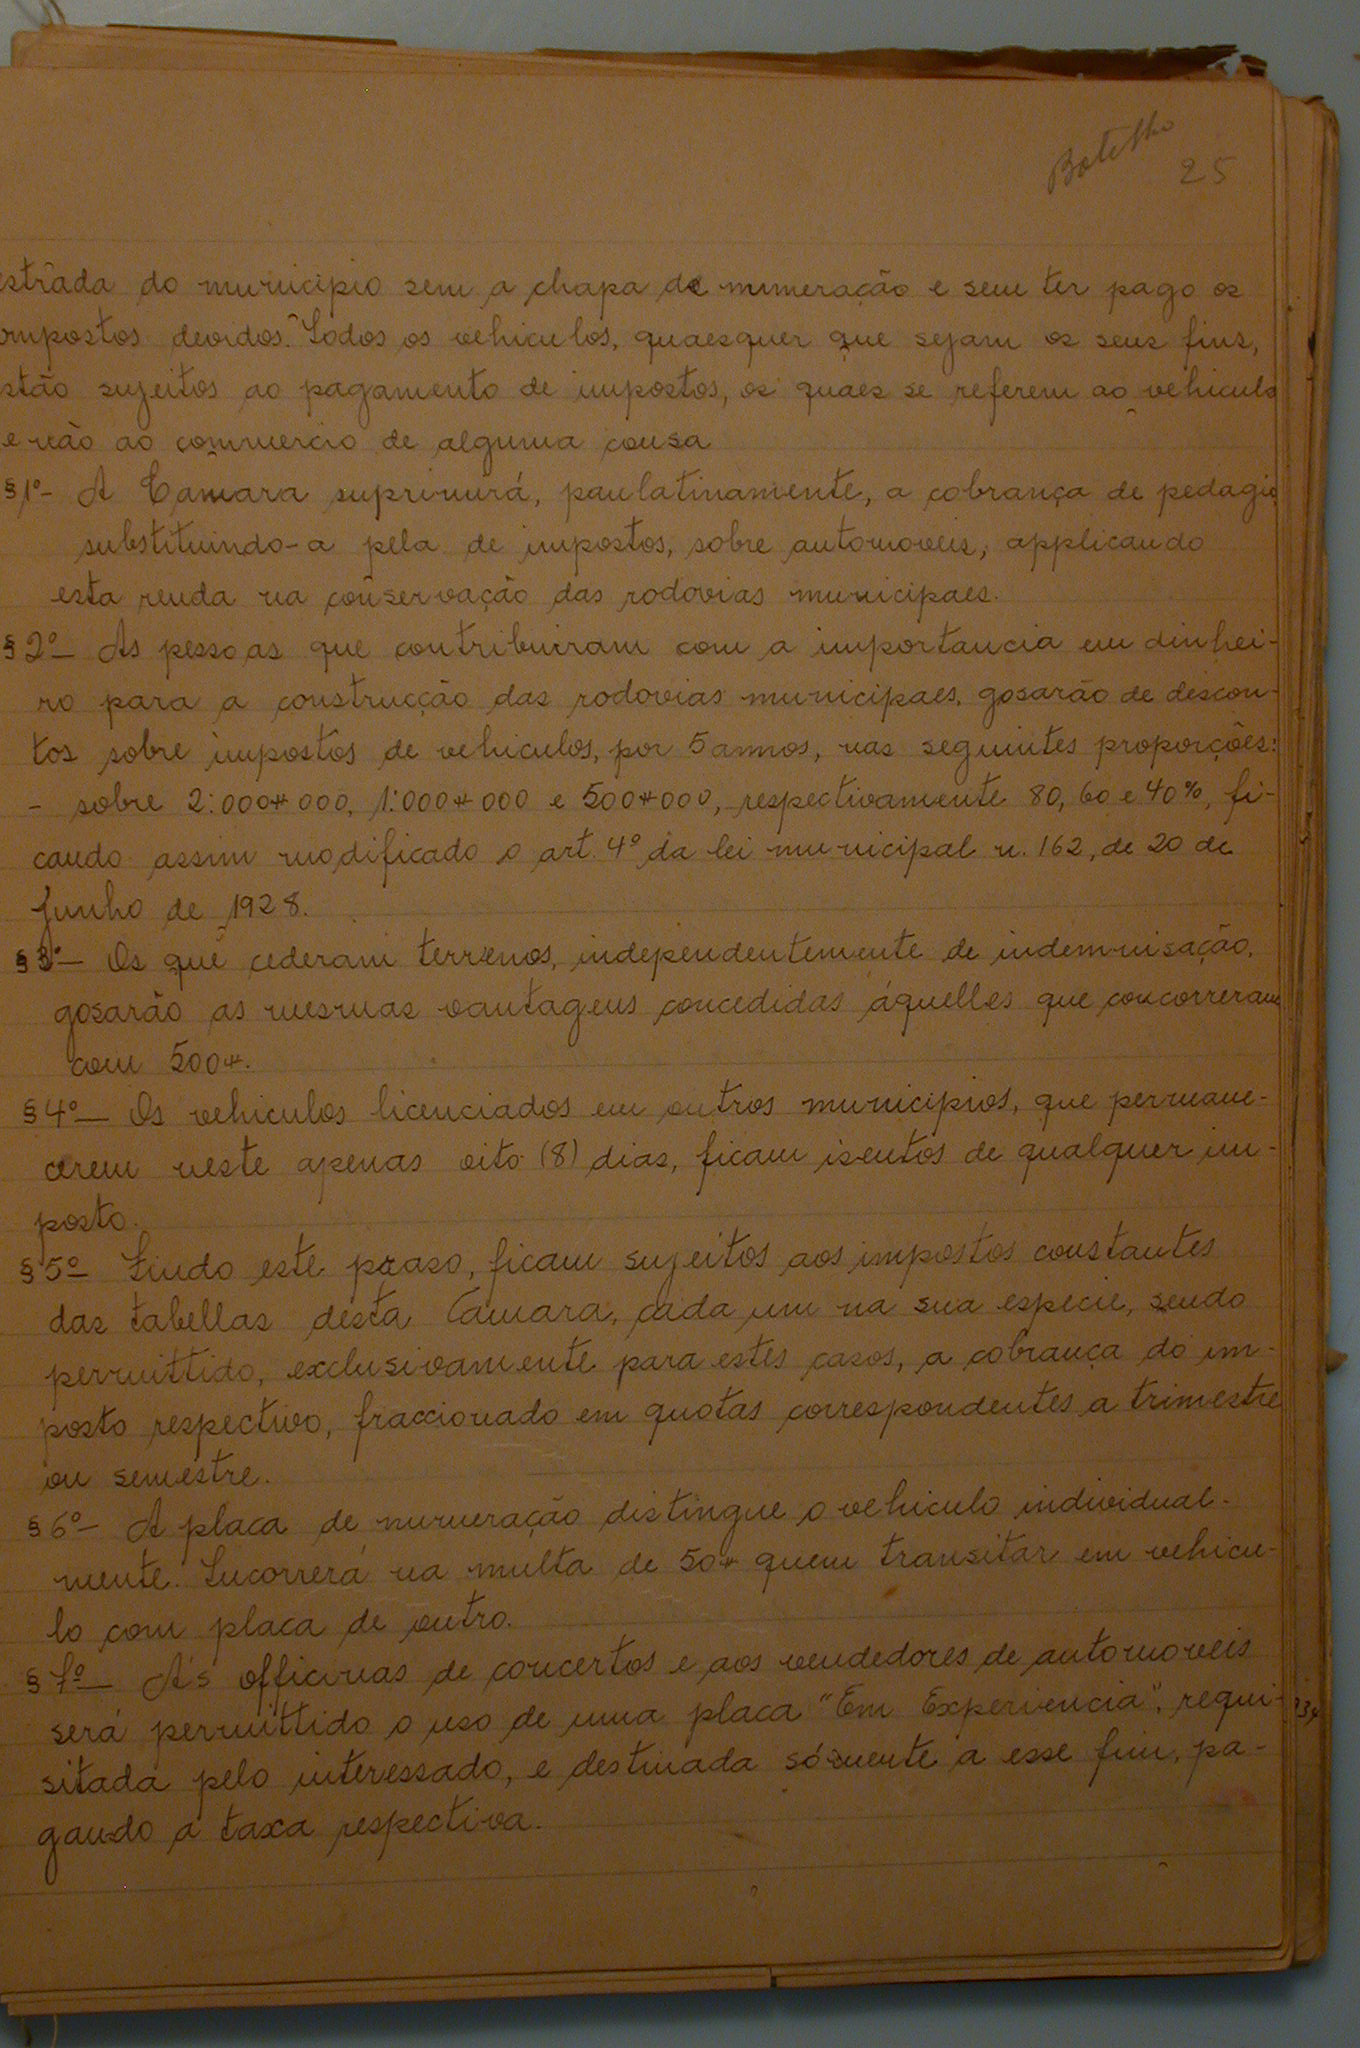 Botelho
25
estrada do municipio sem a chapa de numeração e sem ter pago os
impostos devidos. Todos os vehiculos, quaesquer que sejam os seus fins,
stão sujeitos ao pagamento de impostos, os quaes se referem ao vehiculo
e não ao commercio de alguma cousa
§ 1º - A Camara suprimirá, paulatinamente, a cobrança de pedagio
substituindo-a pela de impostos, sobre automoveis, applicando
esta renda na conservação das rodovias municipaes.
§ 2º - As pessoas que contribuiram com a importancia em dinhei-
ro para a construcção das rodovias municipaes, gosarão de descon-
tos sobre impostos de vehiculos, por 5 annos, nas seguintes proporções:
- sobre 2:000$000, 1:000$000 e 500$000, respectivamente 80, 60 e 40%, fi-
cando assim modificado o art. 4º da lei municipal n. 162, de 20 de
Junho de 1928.
§ 3º - Os que cederam terrenos, independentemente de indemnisação,
gosarão as mesmas vantagens concedidas áquelles que concorreram
com 500$.
§ 4º - Os vehiculos licenciados em outros municipios, que permane-
cerem neste apenas oito (8) dias, ficam isentos de qualquer im-
posto.
§ 5º - Findo este praso, ficam sujeitos aos impostos constantes
das tabellas desta Camara, cada um na sua especie, sendo
permittido, exclusivamente para estes casos, a cobrança do im-
posto respectivo, fraccionado em quotas correspondentes a trimestre
ou semestre.
§ 6º - A placa de numeração distingue o vehiculo individual-
mente. Incorrerá na multa de 50$ quem transitar em vehicu-
lo com placa de outro.
§ 7º - Ás officinas de concertos e aos vendedores de automoveis
será permittido o uso de uma placa "Em Experiencia", requi-
sitada pelo interessado, e destinada sómente a esse fim, pa-
gando a taxa respectiva.